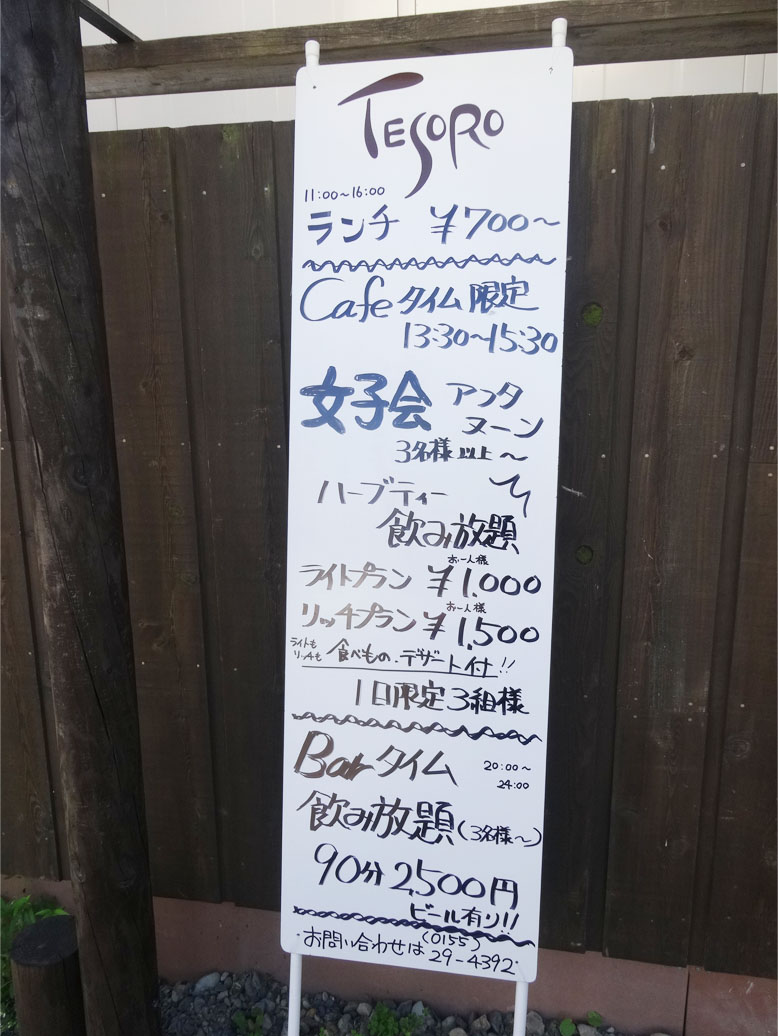 TESORO
11:00~16:00
ランチ ¥700~
Cafeタイム限定
13:30~15:30
女子会 アフタ
ヌーン
3名様以上~
ハーブティー
飲み放題
お一人様
ライトプラン ¥1,000
お一人様
リッチプラン ¥1,500
ライトも
リッチも 食べもの.デザート付!!
1日限定3組様
Barタイム 20:00~
24:00
飲み放題(3名様~)
90分2,500円
ビール有り!!
お問い合わせは(0155)
29-4392